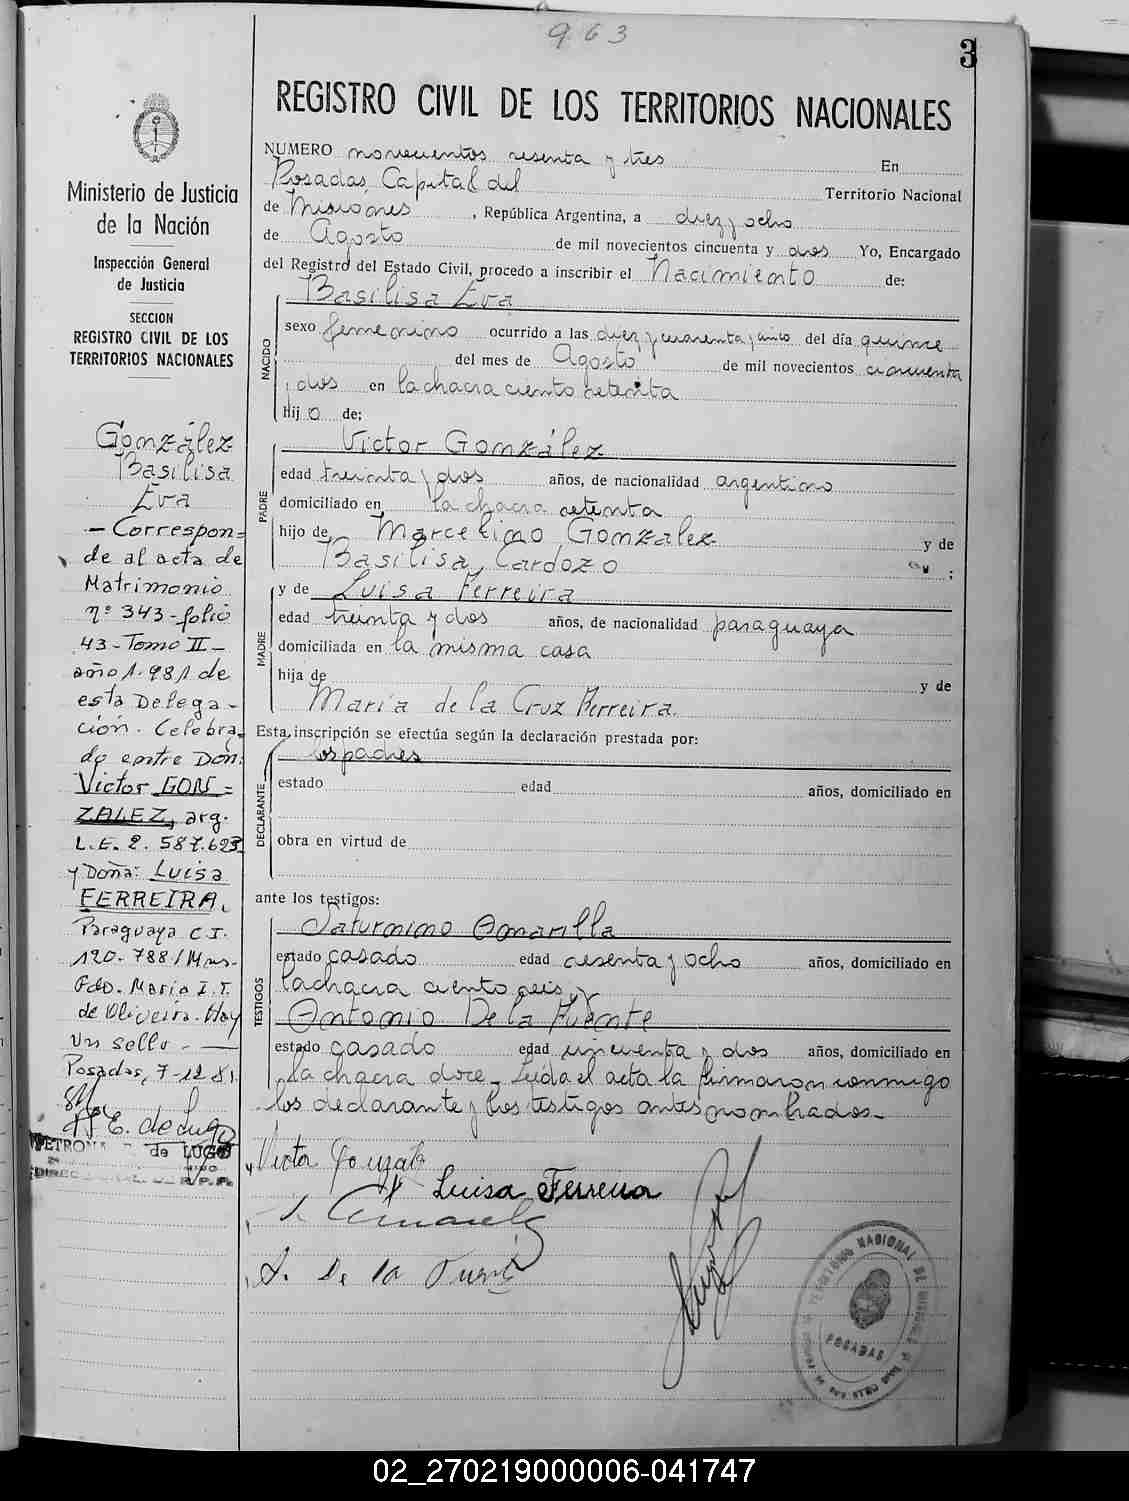 963
3
REGISTRO CIVIL DE LOS TERRITORIOS NACIONALES
NUMERO novecientos sesenta y tres En
Posadas, Capital del Territorio Nacional
de Misiones, República Argentina, a diez y ocho
de Agosto de mil novecientos cincuenta y dos Yo, Encargado
del Registro del Estado Civil, procedo a inscribir el Nacimiento de:
Basilisa Eva
NACIDO
sexo femenino ocurrido a las diez y cuarenta y cinco del día quince
del mes de Agosto de mil novecientos cincuenta
y dos en la chacra ciento setenta
Hijo de:
Victor González
PADRE
edad treinta y dos años, de nacionalidad argentino
domiciliado en la chacra setenta
hijo de Marcelino Gonzalez y de
Basilisa Cardozo ;
y de Luisa Ferreira
MADRE
edad treinta y dos años, de nacionalidad paraguaya
domiciliada en la misma casa
hija de y de
María de la Cruz Ferreira.
Esta inscripción se efectúa según la declaración prestada por:
los padres
DECLARANTE
estado edad años, domiciliado en
obra en virtud de
ante los testigos:
Saturnino Amarilla
TESTIGOS
estado casado edad sesenta y ocho años, domiciliado en
la chacra ciento seis, y
Antonio De la Fuente
estado casado edad cincuenta y dos años, domiciliado en
la chacra doce. Leída el acta la firmaron conmigo
los declarante y los testigos antes nombrados.
Victor Gonzalez
Luisa Ferreira
A. De la Fuente
Ministerio de Justicia
de la Nación
Inspección General
de Justicia
SECCION
REGISTRO CIVIL DE LOS
TERRITORIOS NACIONALES
González
Basilisa
Eva
- Correspon=
de al acta de
Matrimonio
nº 343 - folio
43 - Tomo II -
año 1.981 de
esta Delega-
ción. Celebra
do entre Don:
Victor GON=
ZALEZ, arg.
L.E. 2.587.623
y Doña: Luisa
FERREIRA,
Paraguaya C.I.
120.788/Mnes.
Fdo. María I. T.
de Oliveira. Hay
un sello. —
Posadas, 7-12-81
E. de Lugo
PETRONA de LUGO
TERRITORIO NACIONAL DE MISIONES
POSADAS
02_270219000006-041747